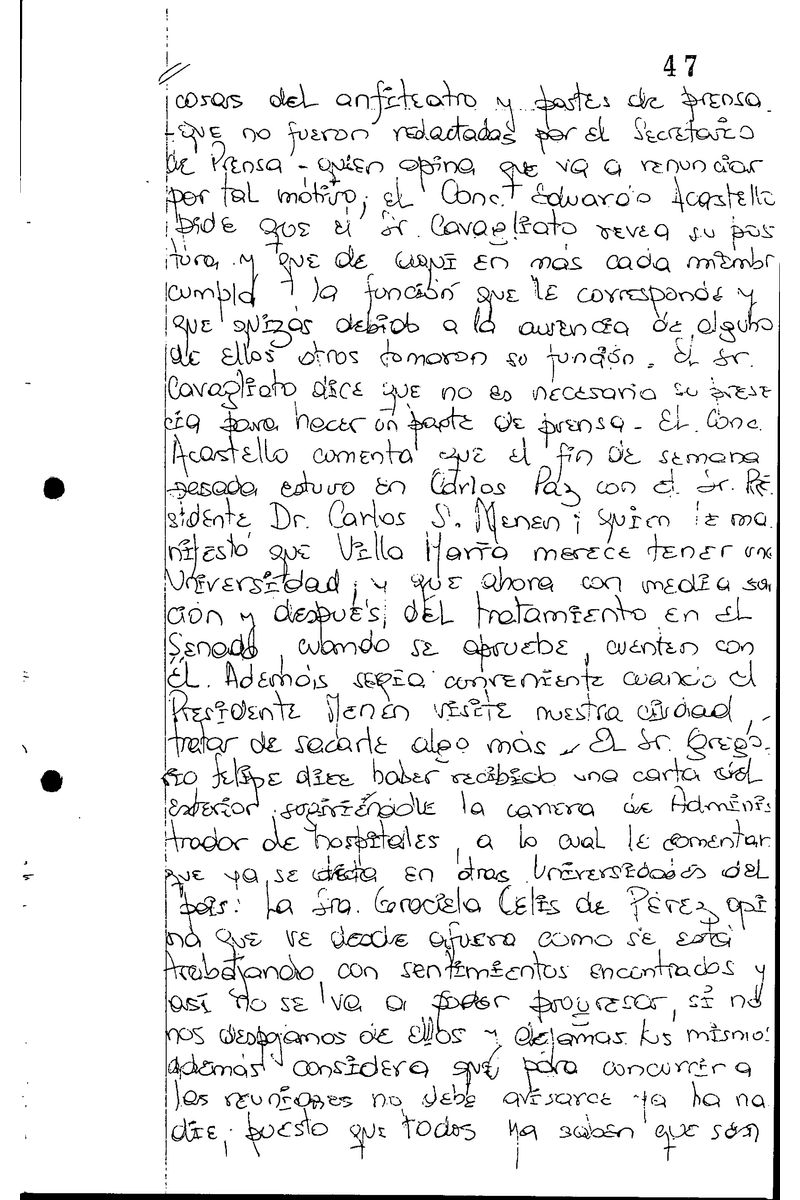 47
cosas del anfiteatro y partes de prensa
-que no fueron redactadas por el Secretario
de Prensa - quien opina que va a renunciar
por tal motivo; el Conc. Eduardo Acastello
pide que el Sr. Cavagliato revea su pos
tura y que de aquí en más cada miembr
cumpla la función que le corresponde y
que quizás debido a la ausencia de alguno
de ellos otros tomaron su función. El Sr.
Cavagliato dice que no es necesaria su prese
cia para hacer un parte de prensa - El Conc.
Acastello comenta que el fin de semana
pasada estuvo en Carlos Paz con el Sr. Pre
sidente Dr. Carlos S. Menen; quien le ma
nifestó que Villa María merece tener una
Universidad, y que ahora con media san
ción y después, del tratamiento en el
Senado, cuando se apruebe, cuenten con
Él. Además sería conveniente cuando el
Presidente Menen visite nuestra ciudad,
tratar de sacarle algo más. El Sr. Grego
rio Felipe dice haber recibido una carta del
exterior sugiriéndole la carrera de Adminis
trador de hospitales, a lo cual le comentar
que ya se dicta en otras Universidades del
país. La Sra. Graciela Celis de Pérez opi
na que ve desde afuera como se está
trabajando con sentimientos encontrados y
así no se va a poder progresar, si no
nos despojamos de ellos y dejamos los mismo
además considera que para concurrir a
las reuniones no debe avisarce ya ha na
die, puesto que todos ya saben que son